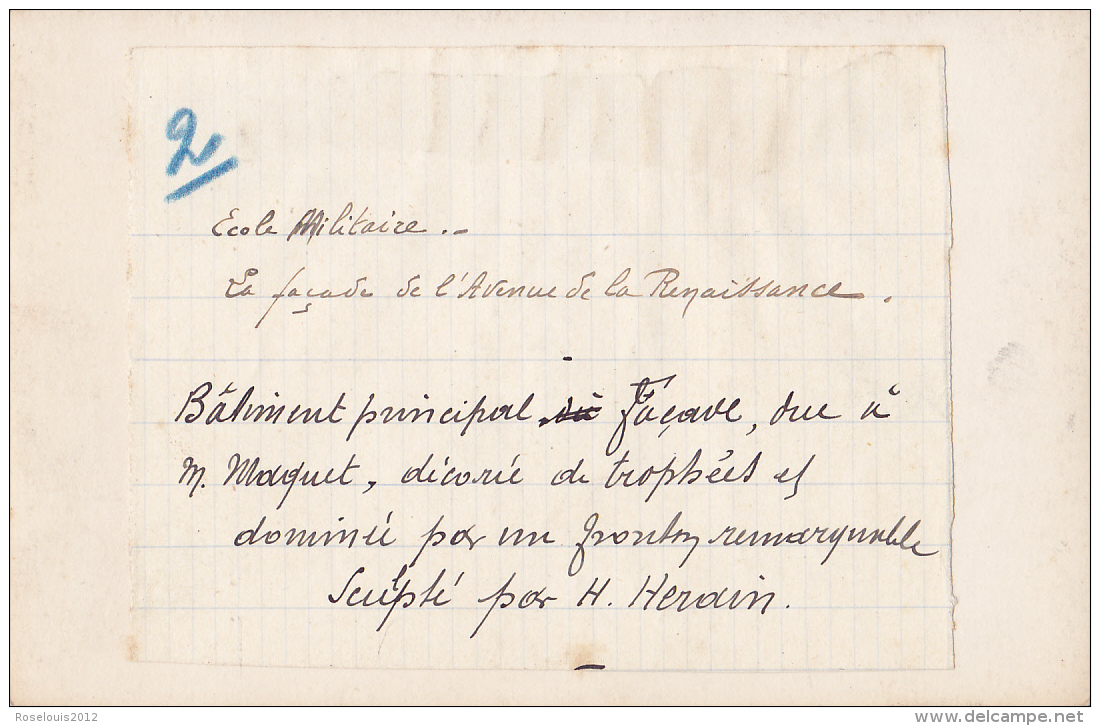 2
Ecole Militaire. -
La façade de l'Avenue de la Renaissance.
Bâtiment principal, Façade, due à
M. Maquet, décorée de trophées et
dominée par un fronton remarquable
Sculpté par H. Herain.
Roselouis2012
www.delcampe.net